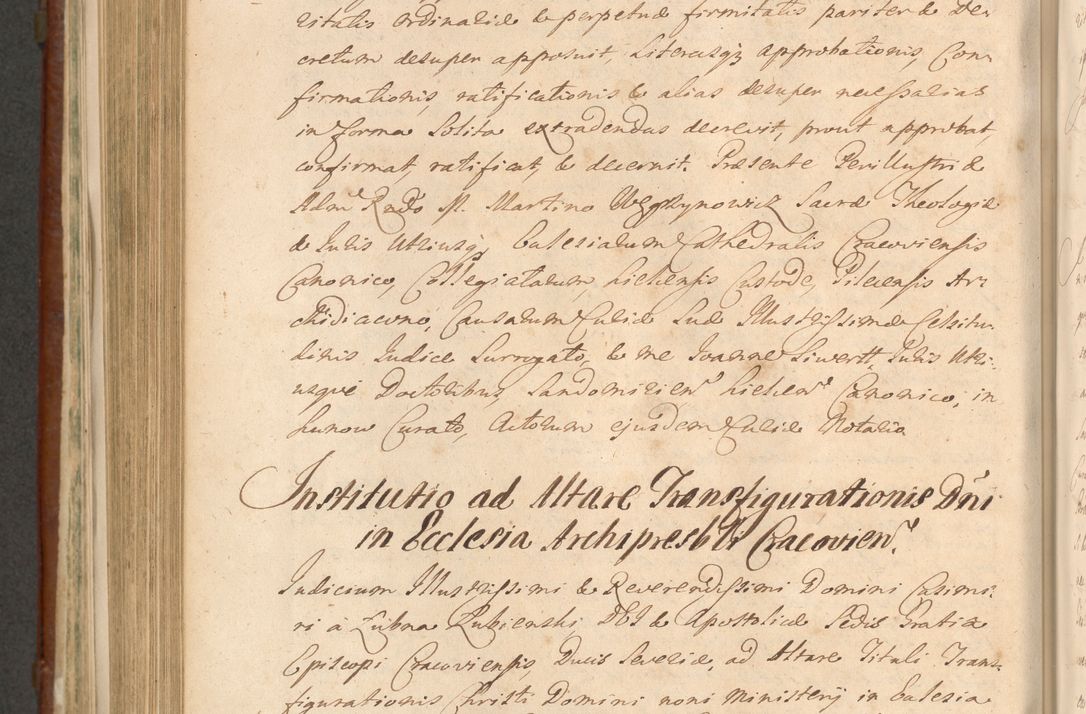 ritatis Ordinariæ & perpetuæ firmitatis pariter & De-
cretum desuper apposuit, Literasq; approbationis, Con-
firmationis, ratificationis & alias desuper necessarias
in forma Solita extradendas decrevit, prout approbat,
confirmat, ratificat, & decernit. Præsente Perillustri &
Adm Rndo M. Martino Sacræ Theologiæ
& Iuris Utriusq; Ecclesiarum Cathedralis Cracoviensis
Canonico, Collegiatarum, Kielcensis Custode, Pilecensis Ar-
chidiacono, Causarum Curiæ Suæ Illustrissimæ Celsitu-
dinis Iudice Surrogato, & me Joanne Siwertt, Iuris Utri-
usque Doctoribus, Sandomirien Kielcen Canonico, in
Curato, Actorum ejusdem Curiæ Notario
Institutio ad Altare Transfigurationis Dñi
in Ecclesia Archipresbtr Cracovien.
Iudicium Illustrissimi & Reverendissimi Domini Casimi-
ri à Łubna Łubienski, DEI & Apostolicæ Sedis Gratia
Episcopi Cracoviensis, Ducis Severiæ, ad Altare Tituli Trans-
figurationis Christi Domini noni Ministerij in Ecclesia